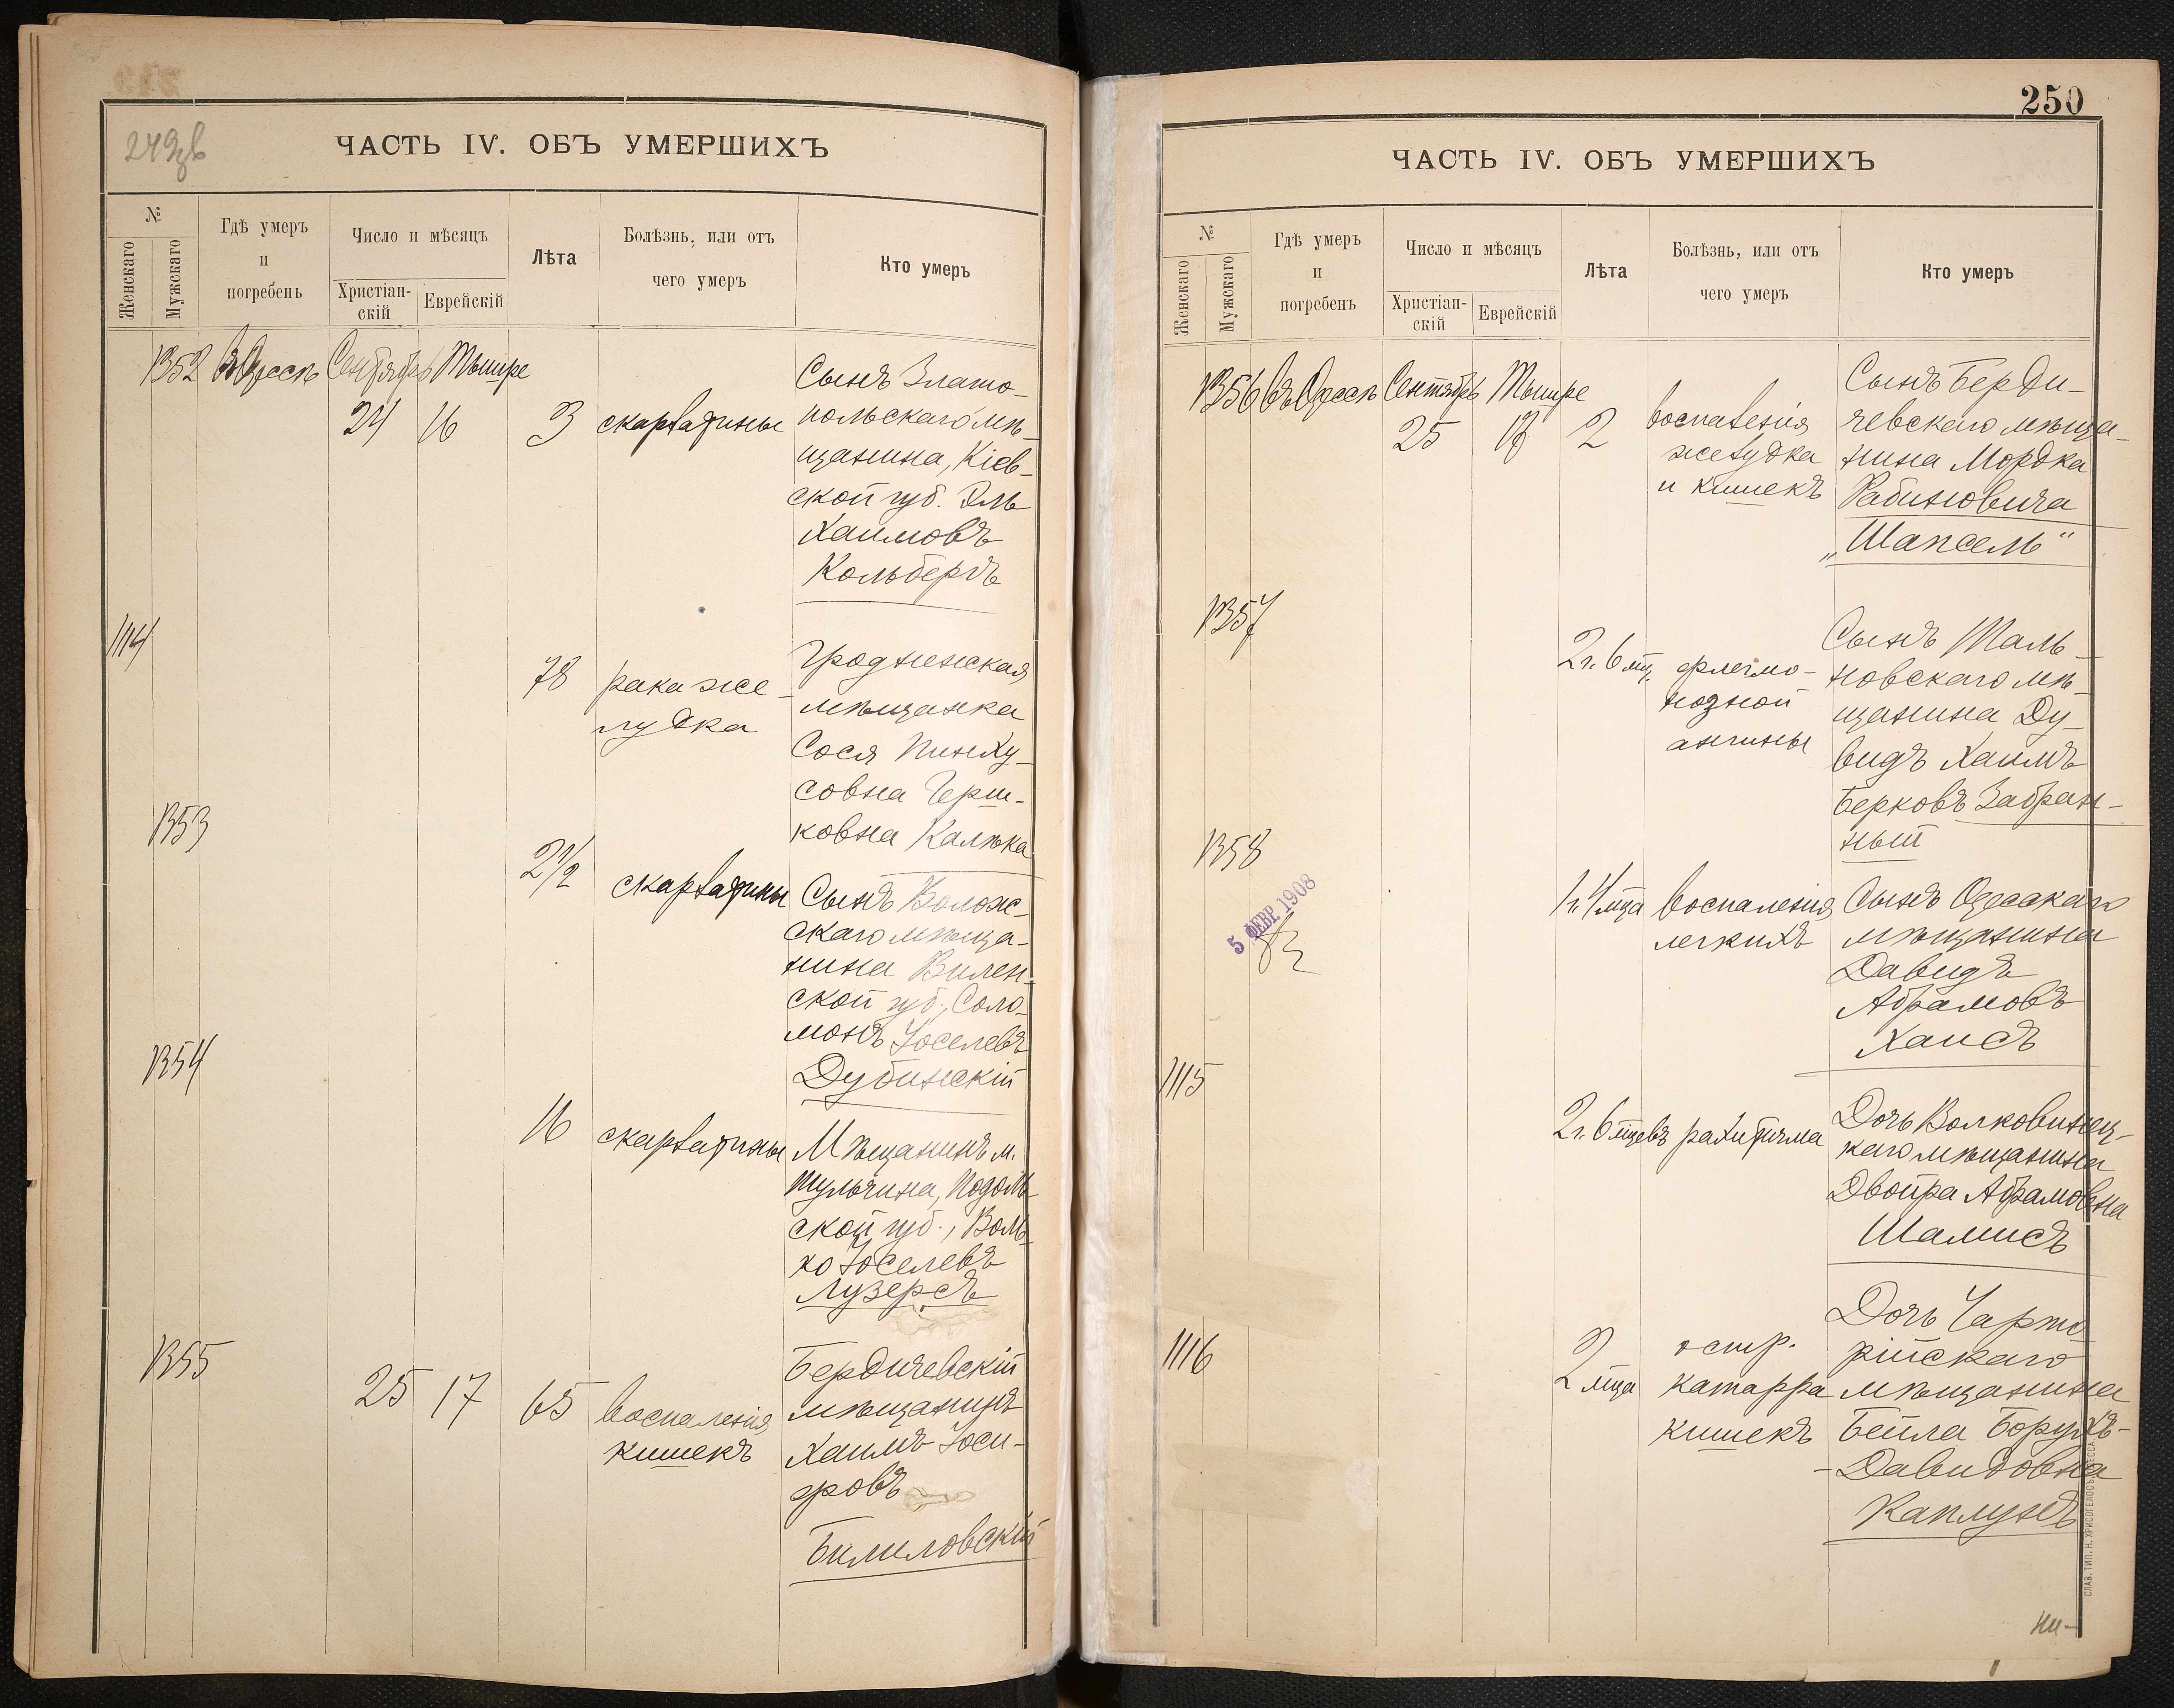 249 об
ЧАСТЬ IV. ОБЪ УМЕРШИХЪ
№
Женскаго
Мужскаго
Гдѣ умеръ
и
погребенъ
Число и мѣсяцъ
Христіан-
скій
Еврейскій
Лѣта
Болѣзнь, или отъ
чего умеръ
Кто умеръ
1352 въ Одессѣ Сентябрь Тышре
24 16 3 скарлатины
Сынъ Злато-
польскаго мѣ-
щанина, Кіев-
ской губ. Эль
Хаимовъ
Кольбергъ
1114
78 рака же-
лудка
Гродненская
мѣщанка
Сося Пинху-
совна Герш-
ковна Калѣка
1353
2 1/2 скарлатины
Сынъ Волож-
скаго мѣща-
нина Вилен-
ской губ., Соло-
монъ Іоселевъ
Дубинскій
1354
16 скарлатины
Мѣщанинъ м.
Тульчина, Подоль-
ской губ., Воль-
ко Іоселевъ
Лузерсъ
1355
25 17 65 воспаленія
кишекъ
Бердичевскій
мѣщанинъ
Хаимъ Іоси-
фовъ
Билиловскій
250
ЧАСТЬ IV. ОБЪ УМЕРШИХЪ
№
Женскаго
Мужскаго
Гдѣ умеръ
и
погребенъ
Число и мѣсяцъ
Христіан-
скій
Еврейскій
Лѣта
Болѣзнь, или отъ
чего умеръ
Кто умеръ
1356 въ Одессѣ Сентябрь Тышре
25 17 2 воспаленія
желудка
и кишекъ
Сынъ Берди-
чевскаго мѣща-
нина Мордка
Рабиновича
„Шапсель“
1357
2 г. 6 мц. флегмо-
нозной
ангины
Сынъ Таль-
новскаго мѣ-
щанина Ду-
видъ Хаимъ
Берковъ Забран-
ный
1358
5 ФЕВР 1908
1 г. 4 мца воспаленія
легкихъ
Сынъ Одесскаго
мѣщанина
Давидъ
Абрамовъ
Хаисъ
1115
2 г. 6 мцевъ рахитизма
Дочь Волковинец-
каго мѣщанина
Двойра Абрамовна
Шамисъ
1116
2
2 мца
остр.
катарра
кишекъ
Дочь Чарто-
рійскаго
мѣщанина
Бейла Борухъ-
-Давидовна
Каплунъ
СЛАВ. ТИП. Н. ХРИСОГЕЛОСЪ, ОДЕССА